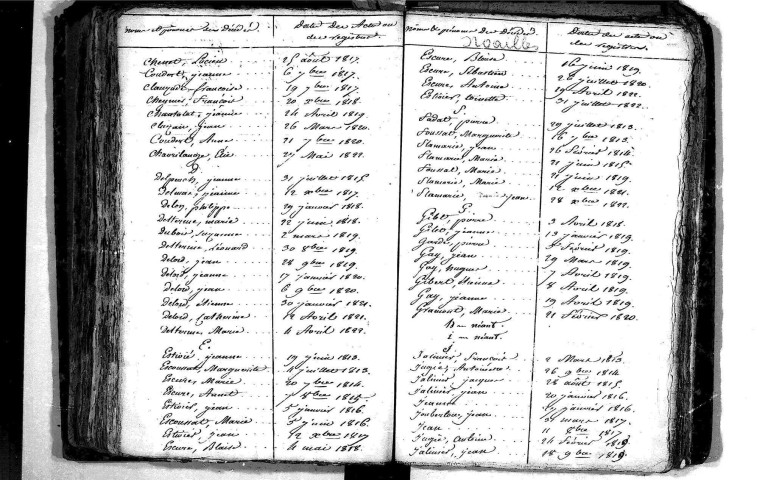 Noms et prénoms des Décédés. Date des Actes ou des registres.
Cheust, Lucien 25 août 1817.
Coudert, jeanne 6 7bre 1817.
Clauzade françoise 19 7bre 1817.
Cheynier, François 20 xbre 1818.
Chastatet, jeanne 24 Avril 1819.
Clauzade, jean 26 Mars 1820.
Coudert, Anne 21 7bre 1820.
27 Mai 1822.
D
Delpeuch, jeanne 31 juillet 1815
Delmas, jeanne 12 xbre 1817.
Delon, philippe 29 janvier 1818.
Delterme, marie 22 juin 1818.
Dubois, Suzanne 2 mars 1819.
Delterme, Léonard 30 8bre 1819.
Delord, jean 28 9bre 1819.
Delord, jeanne 17 janvier 1820.
Delord, jean 6 9bre 1820.
Delord, Etienne 30 janvier 1821.
Delord, Catherine 12 Avril 1821.
Delterme Marie 4 Avril 1822.
E.
Estivié, jeanne 19 juin 1813.
Escoussat, Marguerite 4 juillet 1813.
Escure, Marie 20 7bre 1814.
Escure, Annet 8bre 1815.
Estivier, jean 5 janvier 1816.
Escoussat, Marie 3 juin 1816.
Estivier, jean 12 xbre 1817
Escure, Blaise 4 mai 1818.
Noms et prénoms des Décédés. Date des actes ou des registres.
Noailles
Escure, Blaise 16 juin 1819.
Escure, Sébastien 28 juillet 1820.
Escure, Antoine 19 Avril 1822.
Estivier, toinette 31 juillet 1822.
Fadat, pierre 29 juillet 1813.
Foussat, Marguerite 16 7bre 1813.
Flamarie, jean 26 février 1814.
Flamarie, Marie 21 juin 1815.
Foussat, Marie 21 juin 1819.
Flamarie, Marie 12 xbre 1821.
Flamarie jean 28 xbre 1822.
G.
Gibet, pierre 3 Avril 1818.
Gibet, jeanne 13 janvier 1819.
pierre février 1819.
Gay, jean 29 Mars 1819.
Gay, hugue 7 Avril 1819.
Gibert Etienne 8 Avril 1819.
Gay, jeanne 19 Avril 1819.
Gramont, Marie 21 février 1820.
H — néant.
I — néant.
J
Jalinier, François 2 Mars 1813.
Jugie, Antoinette 26 9bre 1814
Jalinier, jacques 28 août 1815.
Jalinier, jean 20 janvier 1816.
Jeanne 17 janvier 1816.
Joubertou, jean 31 mars 1817.
Jean 11 8bre 1817
Jugie, antoine 24 février 1819
Jalinier, jean 18 9bre 1819